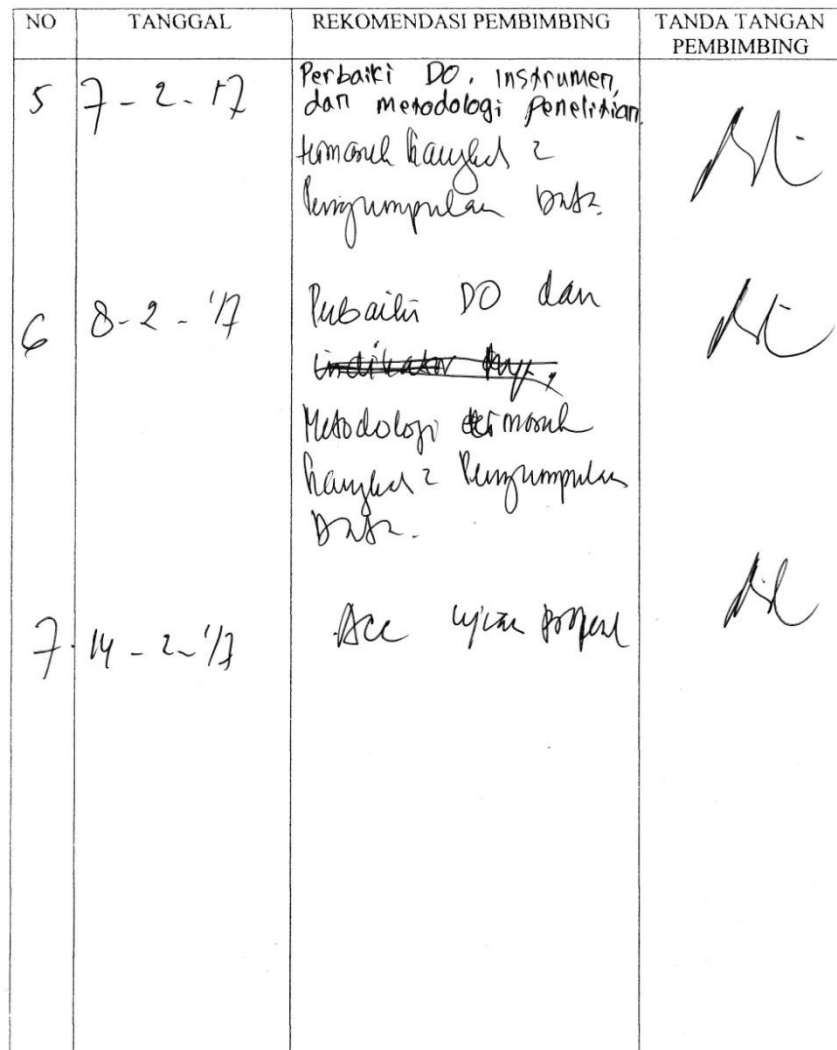 NO TANGGAL REKOMENDASI PEMBIMBING TANDA TANGAN PEMBIMBING
5 7-2-17 Perbaiki DO, instrumen,
dan metodologi penelitian
termasuk 2
Pengumpulan Data.
6 8-2-'17 Perbaiki DO dan
Metodologi termasuk
2 Pengumpulan
Data.
7. 14-2-'17 Acc ujian proposal